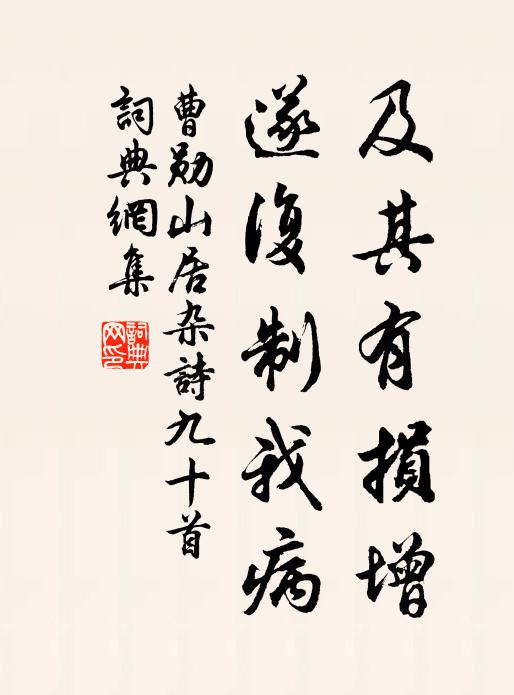 及其有損增
遂復制我病
曹勛山居杂詩九十首
詞典網集
詞典网印